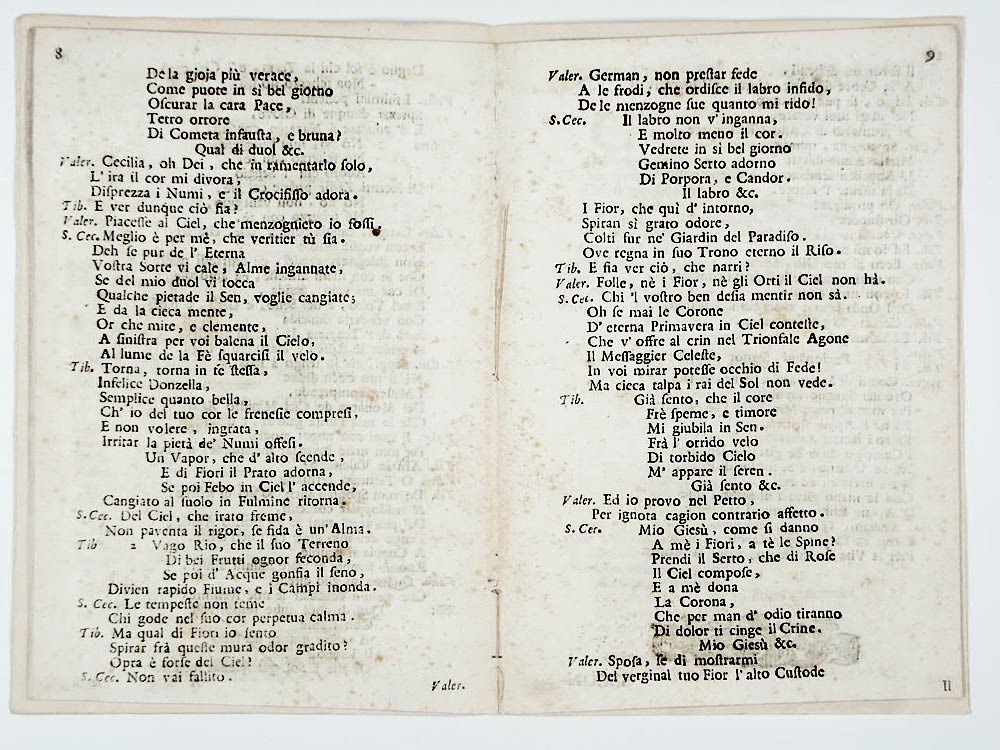 8
De la gioja più verace,
Come puote in sì bel giorno
Oscurar la cara Pace,
Tetro orrore
Di Cometa infausta, e bruna?
Qual di duol &c.
Valer. Cecilia, oh Dei, che in ramentarlo solo,
L' ira il cor mi divora,
Disprezza i Numi, e il Crocifisso adora.
Tib. E ver dunque ciò fia?
Valer. Piacesse al Ciel, che menzogniero io fossi.
S. Cec. Meglio è per mè, che veritier tù sia.
Deh se pur de l' Eterna
Vostra Sorte vi cale, Alme ingannate,
Se del mio duol vi tocca
Qualche pietade il Sen, voglie cangiate;
E da la cieca mente,
Or che mite, e clemente,
A sinistra per voi balena il Cielo,
Al lume de la Fè squarcisi il velo.
Tib. Torna, torna in te stessa,
Infelice Donzella,
Semplice quanto bella,
Ch' io del tuo cor le frenesie compresi,
E non volere, ingrata,
Irritar la pietà de' Numi offesi.
Un Vapor, che d' alto scende,
E di Fiori il Prato adorna,
Se poi Febo in Ciel l' accende,
Cangiato al suolo in Fulmine ritorna.
S. Cec. Del Ciel, che irato freme,
Non paventa il rigor, se fida è un' Alma.
Tib 2 Vago Rio, che il suo Terreno
Di bei Frutti ognor feconda,
Se poi d' Acque gonfia il seno,
Divien rapido Fiume, e i Campi inonda.
S. Cec. Le tempeste non teme
Chi gode nel suo cor perpetua calma.
Tib. Ma qual di Fiori io sento
Spirar frà queste mura odor gradito?
Opra è forse del Ciel?
S. Cec. Non vai fallito.
Valer.
9
Valer. German, non prestar fede
A le frodi, che ordisce il labro infido,
De le menzogne sue quanto mi rido!
S. Cec. Il labro non v' inganna,
E molto meno il cor.
Vedrete in sì bel giorno
Gemino Serto adorno
Di Porpora, e Candor.
Il labro &c.
I Fior, che quì d' intorno,
Spiran sì grato odore,
Colti fur ne' Giardin del Paradiso.
Ove regna in suo Trono eterno il Riso.
Tib. E fia ver ciò, che narri?
Valer. Folle, nè i Fior, nè gli Orti il Ciel non hà.
S. Cec. Chi 'l vostro ben desia mentir non sà.
Oh se mai le Corone
D' eterna Primavera in Ciel conteste,
Che v' offre al crin nel Trionfale Agone
Il Messaggier Celeste,
In voi mirar potesse occhio di Fede!
Ma cieca talpa i rai del Sol non vede.
Tib. Già sento, che il core
Frè speme, e timore
Mi giubila in Sen.
Frà l' orrido velo
Di torbido Cielo
M' appare il seren.
Già sento &c.
Valer. Ed io provo nel Petto,
Per ignota cagion contrario affetto.
S. Cec. Mio Giesù, come si danno
A mè i Fiori, a tè le Spine?
Prendi il Serto, che di Rose
Il Ciel compose,
E a mè dona
La Corona,
Che per man d' odio tiranno
Di dolor ti cinge il Crine.
Mio Giesù &c.
Valer. Sposa, se di mostrarmi
Del verginal tuo Fior l' alto Custode
Il